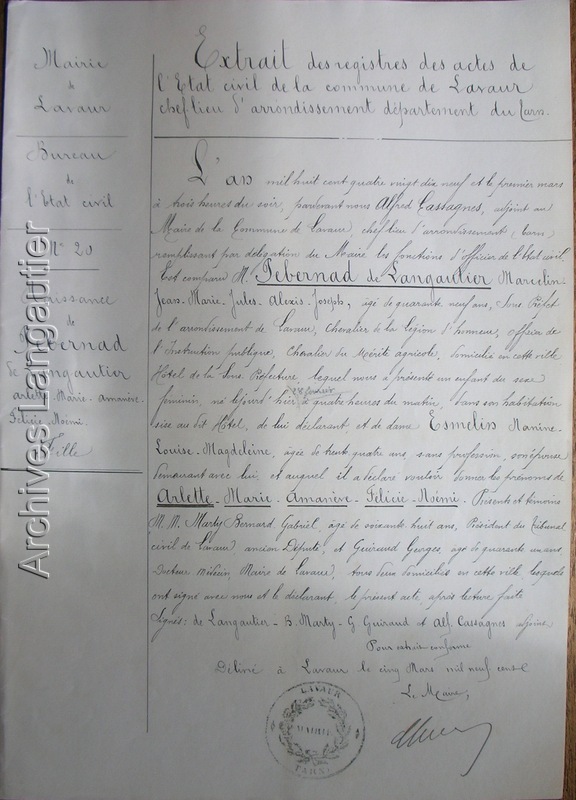 Mairie
de
Lavaur
Bureau
de
l'Etat civil
N° 20
Naissance
de
Pebernad
de Langautier
Arlette-Marie-Amanève-
Félicie-Noëmi
Fille
Extrait des registres des actes de
l'Etat civil de la commune de Lavaur
chef lieu d'arrondissement département du Tarn.
L'an mil huit cent quatre vingt dix neuf et le premier mars
à trois heures du soir, pardevant nous Alfred Cassagnes, adjoint au
Maire de la Commune de Lavaur, chef lieu d'arrondissement, Tarn
remplissant par délégation du Maire les fonctions d'officier de l'Etat civil.
Est comparu M. Pebernad de Langautier Marcelin-
Jean-Marie-Jules-Alexis-Joseph, âgé de quarante neuf ans, Sous Préfet
de l'arrondissement de Lavaur, Chevalier de la Légion d'honneur, officier de
l'Instruction publique, Chevalier du Mérite agricole, domicilié en cette ville
Hotel de la Sous Préfecture, lequel nous a présenté un enfant du sexe
féminin, né le jour d'hier à quatre heures du matin, dans son habitation
sise au dit Hotel, de lui déclarant, et de dame Esmelin Nanine-
Louise-Magdeleine, âgée de trente quatre ans, sans profession, son épouse
demeurant avec lui, et auquel il a déclaré vouloir donner les prénoms de
Arlette-Marie-Amanève-Félicie-Noëmi. Présents et témoins
M.M. Marty Bernard Gabriel, âgé de soixante huit ans, Président du Tribunal
civil de Lavaur, ancien Député, et Guiraud Georges, âgé de quarante un ans,
Docteur Médecin, Maire de Lavaur, tous deux domiciliés en cette ville, lesquels
ont signé avec nous et le déclarant, le présent acte, après lecture faite
Signés: de Langautier - B. Marty - G Guiraud et Alf. Cassagnes adjoint
Pour extrait conforme
Délivré à Lavaur le cinq Mars mil neuf cent
Le Maire,
LAVAUR
MAIRIE
TARN
Archives Langautier